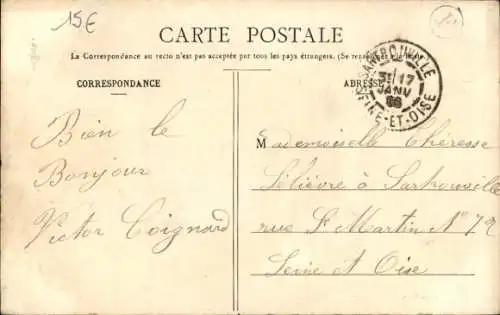 15€
CARTE POSTALE
La Correspondance au recto n'est pas acceptée par tous les pays étrangers. (Se renseigner
CORRESPONDANCE
ADRESSE
SARTROUVILLE
17
JANV
SEINE-ET-OISE
Bien le
Bonjour
Victor Coignard
Mademoiselle Thérèse
Lelièvre à Sartrouville
rue St Martin No
Seine et Oise